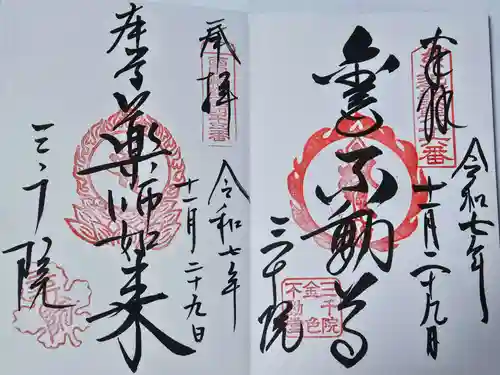 奉拝
令和七年
十一月二十九日
金色不動尊
三千院
三千院
金色
不動堂
奉拝
令和七年
十一月二十九日
薬師如来
三千院